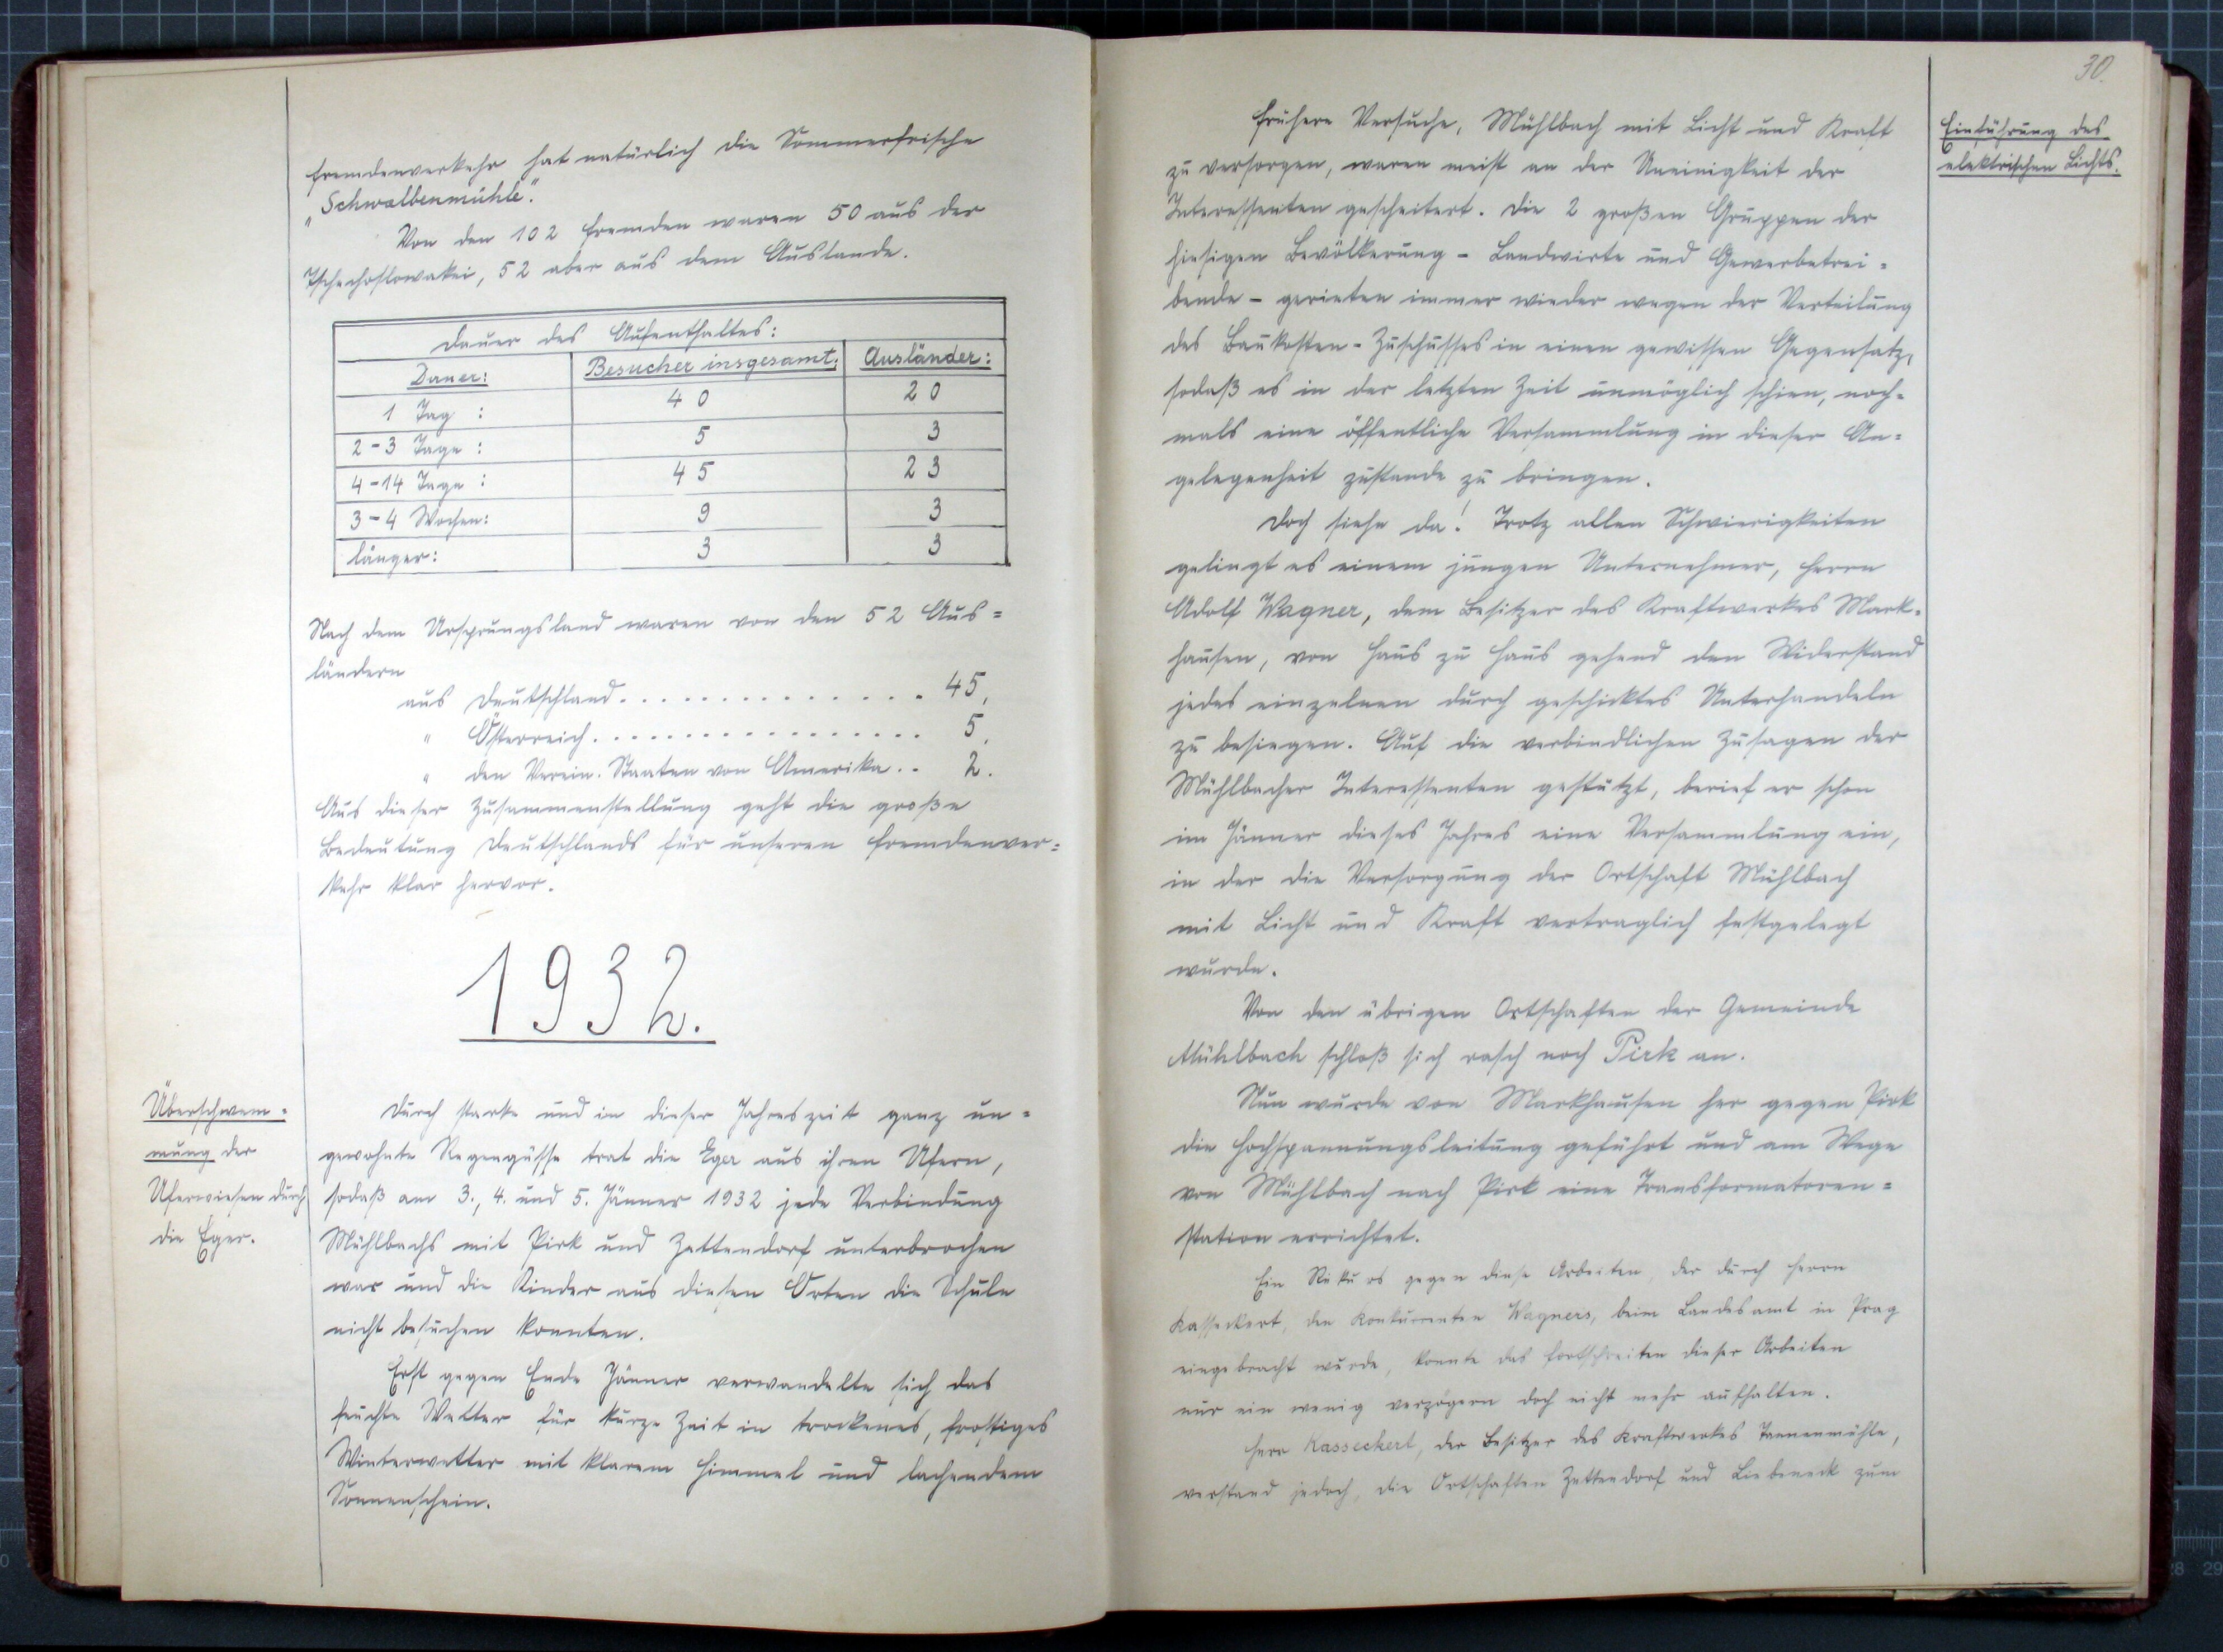 Fremdenverkehr hat natürlich die Sommerfrische
„Schwalbenmühle“.
Von den 102 Fremden waren 50 aus der
Tschechoslowakei, 52 aber aus dem Auslande.
Dauer des Aufenthaltes:
Dauer: Besucher insgesamt: Ausländer:
1 Tag : 40 20
2-3 Tage : 5 3
4-14 Tage : 45 23
3-4 Wochen: 9 3
länger: 3 3
Nach dem Ursprungsland waren von den 52 Aus=
ländern
aus Deutschland. . . . . . . . . . . . . . 45,
" Österreich. . . . . . . . . . . . . . . . 5,
" den Verein. Staaten von Amerika. . 2.
Aus dieser Zusammenstellung geht die große
Bedeutung Deutschlands für unseren Fremdenver=
kehr klar hervor.
1932.
Überschwem=
mung der
Uferwiesen durch
die Eger.
Durch starke und in dieser Jahreszeit ganz un=
gewohnte Regengüsse trat die Eger aus ihren Ufern,
sodaß am 3., 4. und 5. Jänner 1932 jede Verbindung
Mühlbachs mit Pirk und Zettendorf unterbrochen
war und die Kinder aus diesen Orten die Schule
nicht besuchen konnten.
Erst gegen Ende Jänner verwandelte sich das
feuchte Wetter für kurze Zeit in trockenes, frostiges
Winterwetter mit klarem Himmel und lachendem
Sonnenschein.
30.
Einführung des
elektrischen Lichts.
Frühere Versuche, Mühlbach mit Licht und Kraft
zu versorgen, waren meist an der Uneinigkeit der
Interessenten gescheitert. Die 2 großen Gruppen der
hiesigen Bevölkerung - Landwirte und Gewerbetrei=
bende - gerieten immer wieder wegen der Verteilung
des Baukosten-Zuschusses in einen gewissen Gegensatz,
sodaß es in der letzten Zeit unmöglich schien, noch=
mals eine öffentliche Versammlung in dieser An=
gelegenheit zustande zu bringen.
Doch siehe da! Trotz allen Schwierigkeiten
gelingt es einem jungen Unternehmer, Herrn
Adolf Wagner, dem Besitzer des Kraftwerkes Mark=
hausen, von Haus zu Haus gehend den Widerstand
jedes einzelnen durch geschicktes Unterhandeln
zu besiegen. Auf die verbindlichen Zusagen der
Mühlbacher Interessenten gestützt, berief er schon
im Jänner dieses Jahres eine Versammlung ein,
in der die Versorgung der Ortschaft Mühlbach
mit Licht und Kraft vertraglich festgelegt
wurde.
Von den übrigen Ortschaften der Gemeinde
Mühlbach schloß sich rasch noch Pirk an.
Nun wurde von Markhausen her gegen Pirk
die Hochspannungsleitung geführt und am Wege
von Mühlbach nach Pirk eine Transformatoren=
station errichtet.
Ein Rekurs gegen diese Arbeiten, der durch Herrn
Kasseckert, den Konkurrenten Wagners, beim Landesamt in Prag
eingebracht wurde, konnte das Fortschreiten dieser Arbeiten
nur ein wenig verzögern doch nicht mehr aufhalten.
Herr Kasseckert, der Besitzer des Kraftwerkes Tannenmühle,
verstand jedoch, die Ortschaften Zettendorf und Liebeneck zum